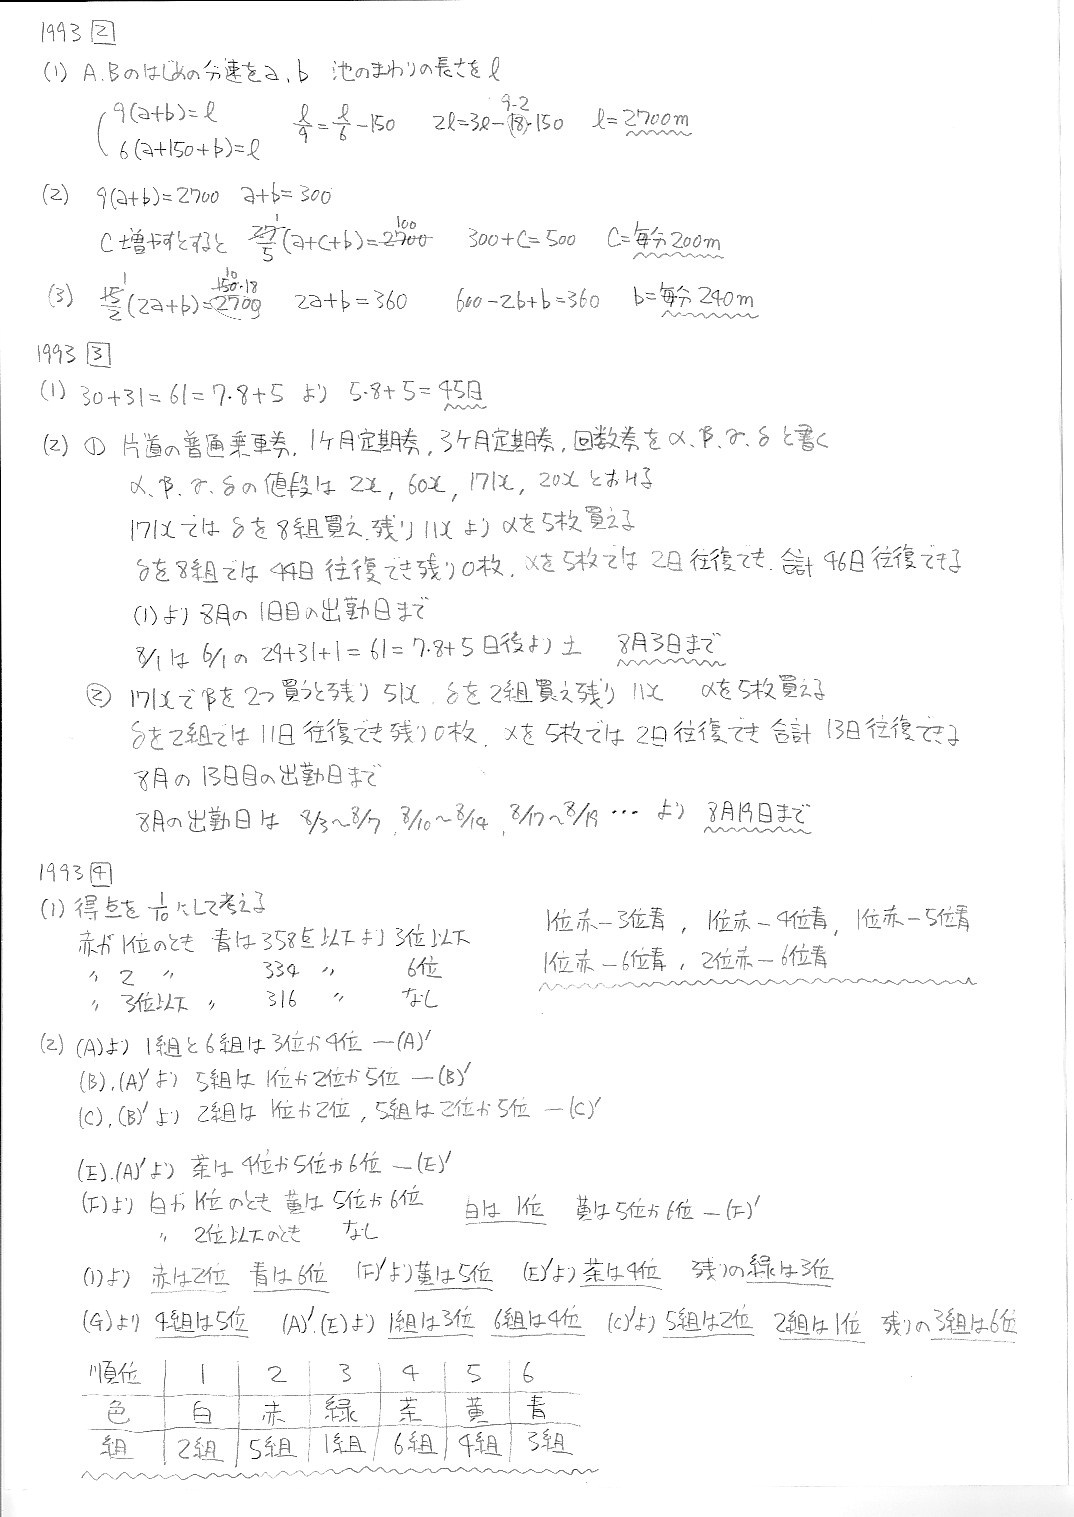 1993 2
(1) A.Bのはじめの分速をa, b 池のまわりの長さをl
9(a+b)=l l/9=l/6-150 2l=3l-18・150 9・2 l=2700m
6(a+150+b)=l
(2) 9(a+b)=2700 a+b=300
C増やすとすると 27/5(a+c+b)=2700 1 100 300+c=500 C=毎分200m
(3) 15/2(2a+b)=2700 1 10 150・18 2a+b=360 600-2b+b=360 b=毎分240m
1993 3
(1) 30+31=61=7・8+5 より 5・8+5=45日
(2) ① 片道の普通乗車券, 1ケ月定期券, 3ケ月定期券, 回数券をα、β、γ、δと書く
α、β、γ、δの値段は 2x, 60x, 171x, 20x とおける
171xではδを8組買え、残り11xよりαを5枚買える
δを8組では44日往復でき残り0枚, αを5枚では2日往復でき、合計46日往復できる
(1)より8月の1日目の出勤日まで
8/1は6/1の29+31+1=61=7・8+5日後より土 8月3日まで
② 171xでβを2つ買うと残り51x、δを2組買え残り11x αを5枚買える
δを2組では11日往復でき残り0枚、αを5枚では2日往復でき合計13日往復できる
8月の13日目の出勤日まで
8月の出勤日は 8/3〜8/7, 8/10〜8/14, 8/17〜8/19 … より 8月19日まで
1993 4
(1) 得点を1/10にして考える
赤が1位のとき 青は358点以下より3位以下 1位赤-3位青, 1位赤-4位青, 1位赤-5位青
〃 2 〃 334 〃 6位 1位赤-6位青, 2位赤-6位青
〃 3位以下 〃 316 〃 なし
(2) (A)より 1組と6組は3位か4位 ―(A)'
(B),(A)'より 5組は1位か2位か5位 ―(B)'
(C),(B)'より 2組は1位か2位, 5組は2位か5位 ―(C)'
(E).(A)'より 茶は4位か5位か6位 ―(E)'
(F)より 白が1位のとき 黄は5位か6位 白は1位 黄は5位か6位 ―(F)'
〃 2位以下のとき なし
(1)より 赤は2位 青は6位 (F)'より黄は5位 (E)'より茶は4位 残りの緑は3位
(G)より 4組は5位 (A)'.(E)より 1組は3位 6組は4位 (C)'より 5組は2位 2組は1位 残りの3組は6位
順位 1 2 3 4 5 6
色 白 赤 緑 茶 黄 青
組 2組 5組 1組 6組 4組 3組